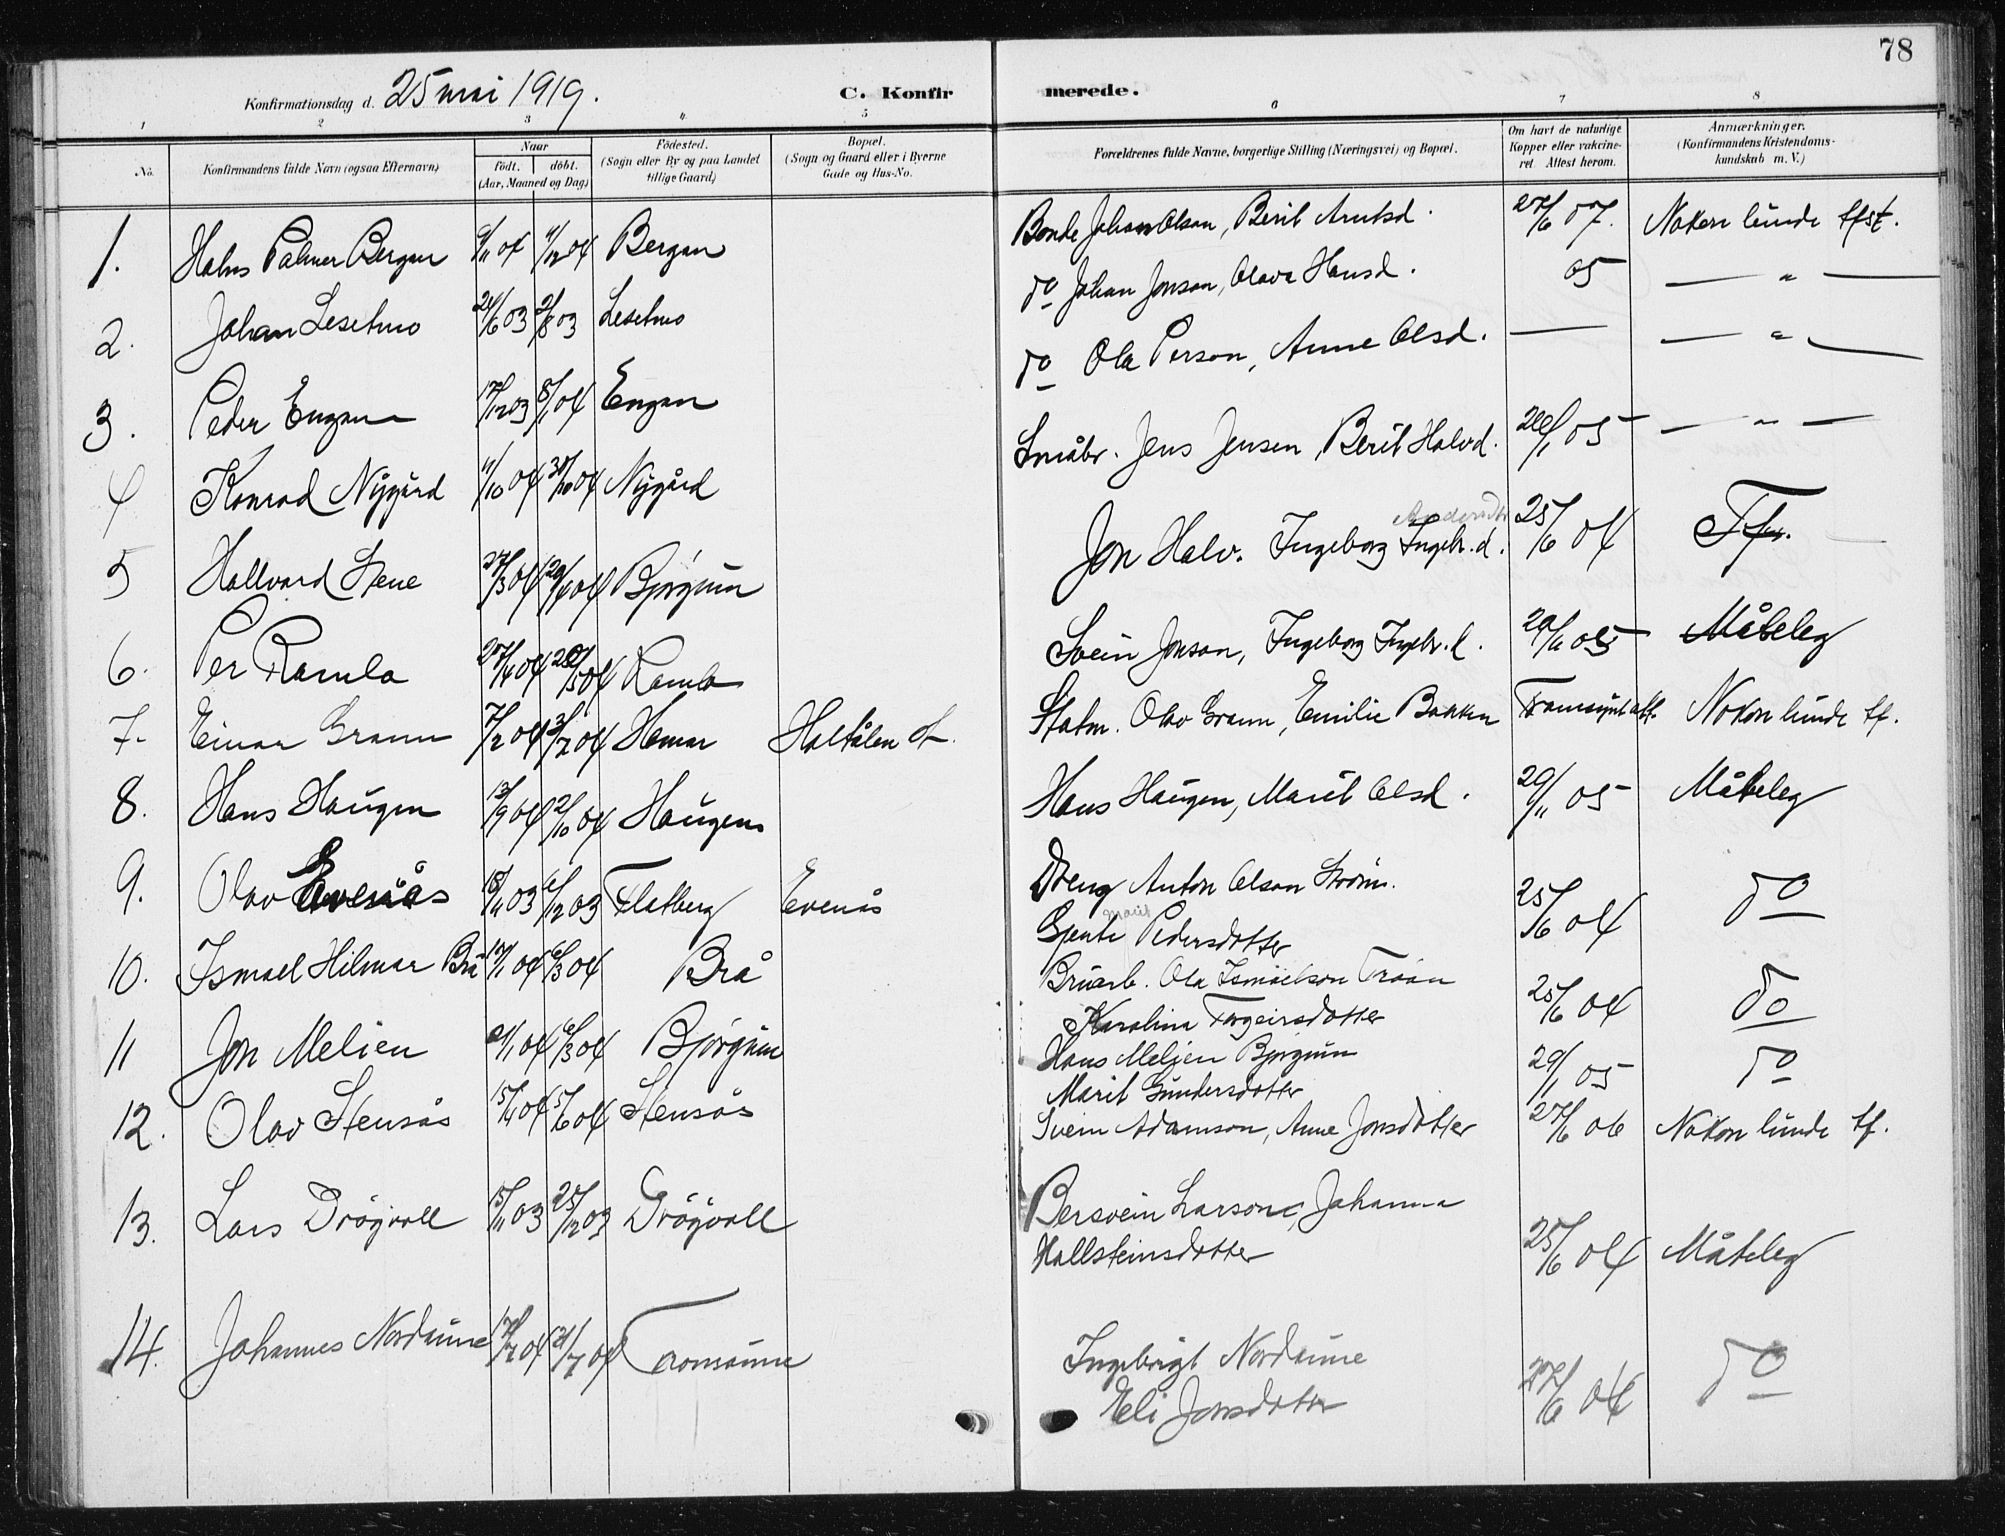 78
Konfirmationsdag d. 25 mai 1919. C. Konfirmerede.
1 2 3 4 5 6 7 8
No. Konfirmandens fulde Navn (ogsaa Efternavn) Naar født. døbt. (Aar, Maaned og Dag) Fødested. (Sogn eller By og paa Landet tillige Gaard) Bopæl. (Sogn og Gaard eller i Byerne Gade og Hus-No. Forældrenes fulde Navne, borgerlige Stilling (Næringsvei) og Bopæl. Om havt de naturlige Kopper eller vakcineret. Attest herom. Anmærkninger. (Konfirmandens Kristendomskundskab m. V.)
1. Palmer Bergan 04 /12 04 Bergan Bonde Johan Olson, Berit Arntsd. 27/6 07. Nokon lunde tfst.
2. Johan Lesetmo /6 03 2/8 03 Lesetmo do Johan Jonson, Olava Hansd. 05 — " —
3. Peder Engan 17/12 03 8/1 04 Engan do Ola Person, Anne Olsd. — — " —
4 Konrad Nygård 11/10 04 30/10 04 Nygård Småbr. Jens Jensen, Berit Halvd. /1 05 — " —
5 Hallvard Stene 27/3 04 /4 04 Bjørgum Jon Halv. Ingeborg Ingebr.d. Andersdtr 25/6 04 Tfs.
6. Per Ramlo 27/4 04 /5 04 Ramlo Svein Jonson, Ingeborg Ingebr.d. 05 Måteleg
7. Einar Gramm 7/2 04 3/7 04 Hemar Haltålen st. Statm. Olav Gramm, Emilie Bakken Framsynt att. Nokon lunde tf.
8. Hans Haugen 13/9 04 2/10 04 Haugen Hans Haugen, Marit Olsd. 29/11 05 Måteleg
9. Olav Evenås 03 /12 03 Flatberg Evenås Dreng Anton Olson Strøm.
Gjente Marit Pedersdotter 25/6 04 do
10. Ismael Hilmar Brå /1 04 6/3 04 Brå Bruarb. Ola Ismaelson Trøån
Karolina Torgeirsdotter 25/6 04 do
11 Jon Melien /1 04 6/3 04 Bjørgum Hans Melien Bjørgum
Marit Gundersdotter 29/1 05 do
12. Olav Stensås 15/4 04 5/6 04 Stensås Svein Adamson, Anne Jonsdotter 27/6 06 Nokon lunde tf.
13. Lars Drøgvoll 15/11 03 25/12 03 Drøgvoll Bersvein Larson, Johanna
Hallsteinsdotter 25/6 04 Måteleg
14. Johannes Nordaune 04 /7 04 Tromsaune Ingebrigt Nordaune
Eli Jonsdotter 27/6 04 do